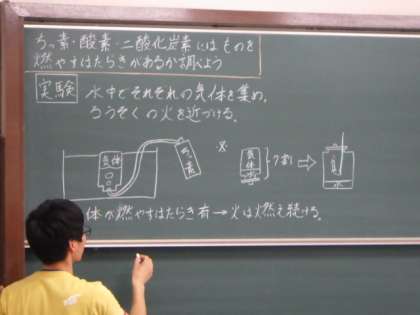 ちっ素・酸素・二酸化炭素にはものを
燃やすはたらきがあるか調べよう
実験 水中でそれぞれの気体を集め、
ろうそくの火を近づける。
気体
ちっ素
※
気体
水
7割
体が燃やすはたらき有→火は燃え続ける。